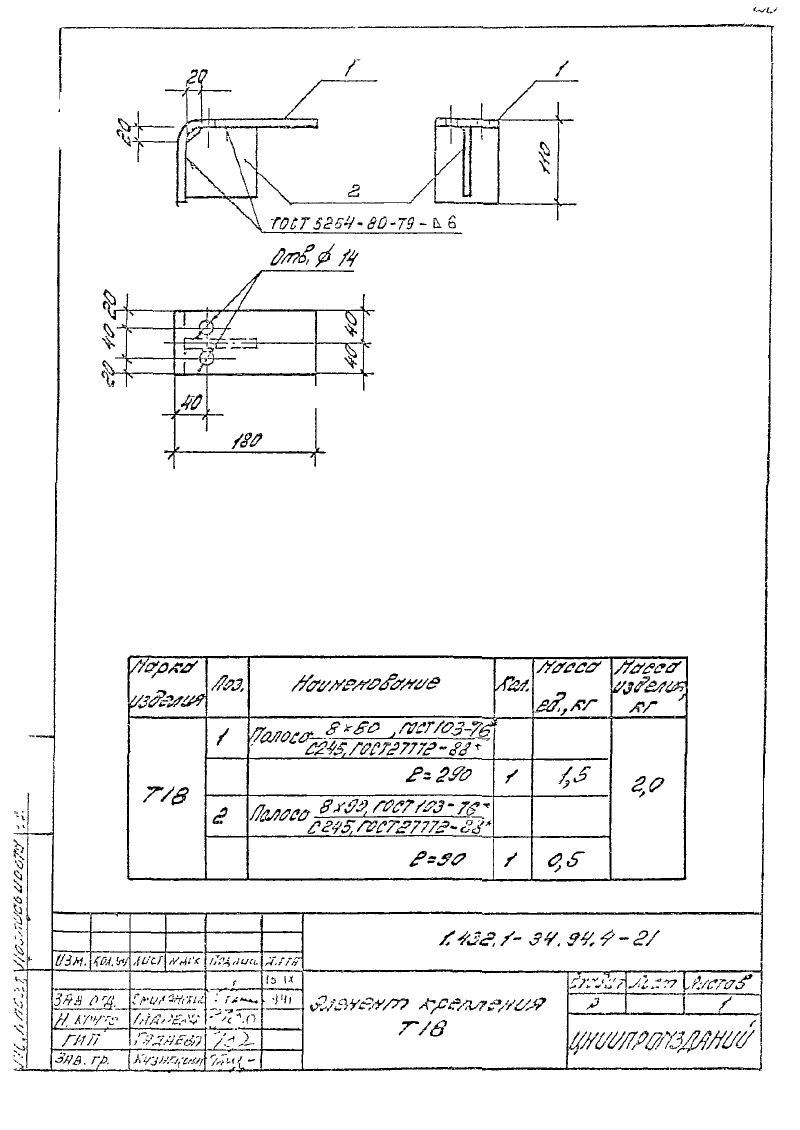 20
1
1
20
110
2
ГОСТ 5264-80-Т9-⊿6
Отв. ϕ 14
20
40
20
40
40
40
180
Марка изделия
Поз.
Наименование
Кол.
Масса ед., кг
Масса изделия, кг
Т18
1
Полоса 8×80, ГОСТ 103-76*
С245, ГОСТ 27772-88*
ℓ=290
1
1,5
2,0
2
Полоса 8×90, ГОСТ 103-76*
С245, ГОСТ 27772-88*
ℓ=90
1
0,5
1.432.1-34.94.4-21
Изм.
Кол.уч
Лист
№док
Подпись
Дата
Зав. отд.
Н. контр
ГИП
Зав. гр.
Элемент крепления
Т18
Стадия
Лист
Листов
Р
1
ЦНИИПРОМЗДАНИЙ